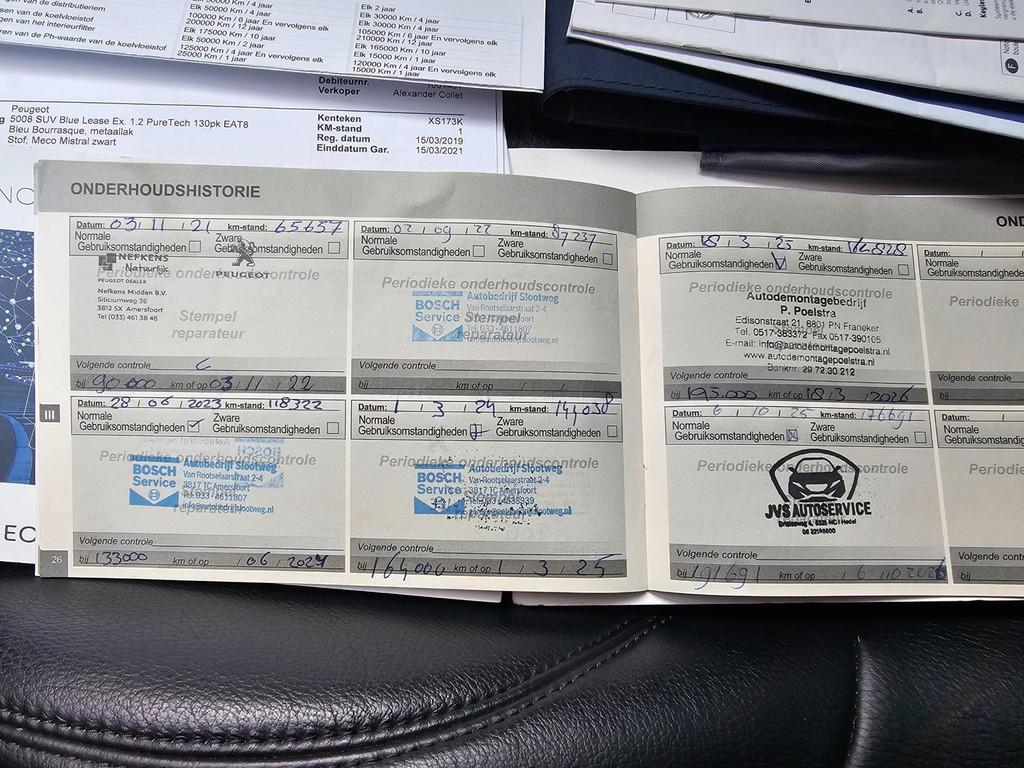 Elk 50000 Km / 4 jaar
100000 Km / 6 jaar En vervolgens elk
200000 Km / 12 jaar
Elk 175000 Km / 10 jaar
Elk 50000 Km / 2 jaar
125000 Km / 4 jaar En vervolgens elk
25000 Km / 1 jaar
van de distributieriem
van de koelvloeistof
van het interieurfilter
van de Ph-waarde van de koelvloeistof
Elk 2 jaar
Elk 30000 Km / 4 jaar
Elk 30000 Km / 4 jaar
105000 Km / 6 jaar En vervolgens elk
210000 Km / 12 jaar
Elk 165000 Km / 10 jaar
Elk 15000 Km / 1 jaar
120000 Km / 4 jaar En vervolgens elk
15000 Km / 1 jaar
Debiteurnr.
Verkoper Alexander Collet
Peugeot
5008 SUV Blue Lease Ex. 1.2 PureTech 130pk EAT8
Bleu Bourrasque, metaallak
Stof, Meco Mistral zwart
Kenteken XS173K
KM-stand 1
Reg. datum 15/03/2019
Einddatum Gar. 15/03/2021
ONDERHOUDSHISTORIE
Datum: 03 / 11 / 21 km-stand: 65637
Normale Gebruiksomstandigheden Zware Gebruiksomstandigheden
NEFKENS
Natuurlijk
PEUGEOT DEALER
PEUGEOT
Periodieke onderhoudscontrole
Nefkens Midden B.V.
Siliciumweg 36
3812 SX Amersfoort
Tel (033) 461 38 46
Stempel
reparateur
Volgende controle
bij 90.000 km of op 03 / 11 / 22
Datum: 02 / 09 / 22 km-stand: 87237
Normale Gebruiksomstandigheden Zware Gebruiksomstandigheden
Periodieke onderhoudscontrole
BOSCH
Service
Autobedrijf Slootweg
Van Rootselaarstraat 2-4
Stempel
reparateur
Volgende controle
bij km of op / /
Datum: 28 / 06 / 2023 km-stand: 118322
Normale Gebruiksomstandigheden Zware Gebruiksomstandigheden
Periodieke onderhoudscontrole
BOSCH
Service
Autobedrijf Slootweg
Van Rootselaarstraat 2-4
3817 TC Amersfoort
Tel: 033 - 4611807
info@autobedrijfslootweg.nl
Volgende controle
bij 133000 km of op / 06 / 2024
Datum: 1 / 3 / 24 km-stand: 144038
Normale Gebruiksomstandigheden Zware Gebruiksomstandigheden
Periodieke onderhoudscontrole
BOSCH
Service
Autobedrijf Slootweg
Van Rootselaarstraat 2-4
3817 TC Amersfoort
Volgende controle
bij 164000 km of op 1 / 3 / 25
III
26
Datum: 18 / 3 / 25 km-stand:
Normale Gebruiksomstandigheden Zware Gebruiksomstandigheden
Periodieke onderhoudscontrole
Autodemontagebedrijf
P. Poelstra
Edisonstraat 21, 8801 PN Franeker
Tel. 0517-383372 Fax 0517-390105
E-mail: info@autodemontagepoelstra.nl
www.autodemontagepoelstra.nl
Banknr. 29 72 30 212
Volgende controle
bij 195.000 km of op 18 / 3 / 2026
Datum: 6 / 10 / 25 km-stand: 176691
Normale Gebruiksomstandigheden Zware Gebruiksomstandigheden
Periodieke onderhoudscontrole
JVS AUTOSERVICE
Volgende controle
bij 191691 km of op 6 / 10 / 2026
OND
Datum: / /
Normale
Gebruiksomstandigheden
Periodieke
Volgende controle
bij
Datum: / /
Normale
Gebruiksomstandigheden
Periodieke
Volgende controle
bij